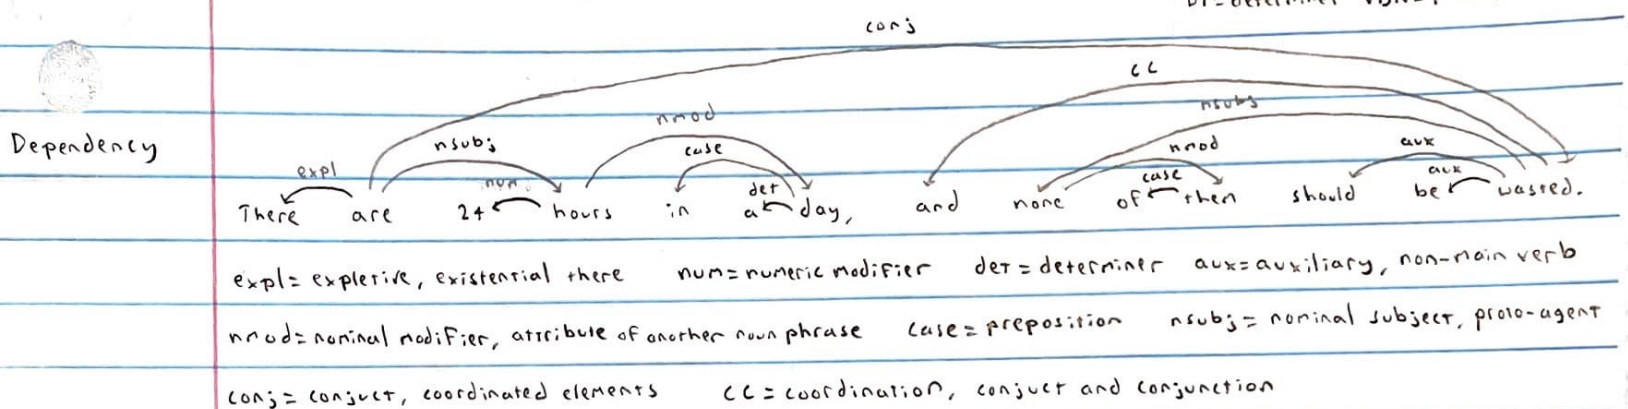 conj
cc
nsubj
nmod
Dependency
nsubj
case
nmod
aux
expl
num
det
case
aux
There are 24 hours in a day, and none of then should be wasted.
expl = expletive, existential there num = numeric modifier det = determiner aux = auxiliary, non-main verb
nmod = nominal modifier, attribute of another noun phrase case = preposition nsubj = nominal subject, proto-agent
conj = conjuct, coordinated elements CC = coordination, conjuct and conjunction